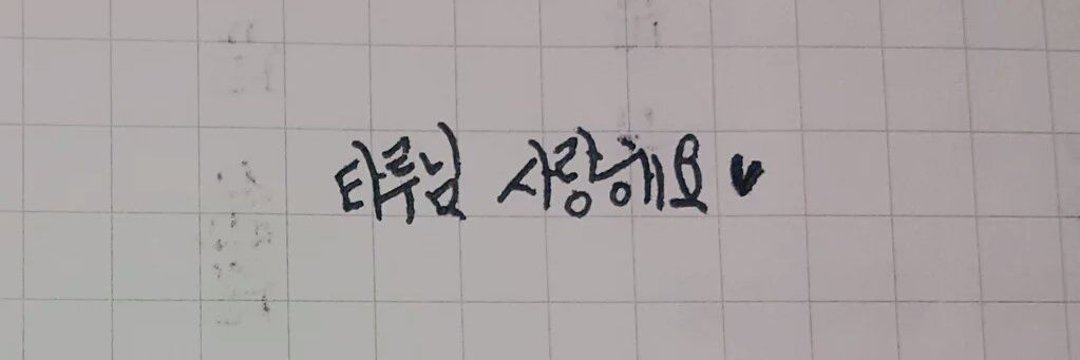 타루님 사랑해요 ♥